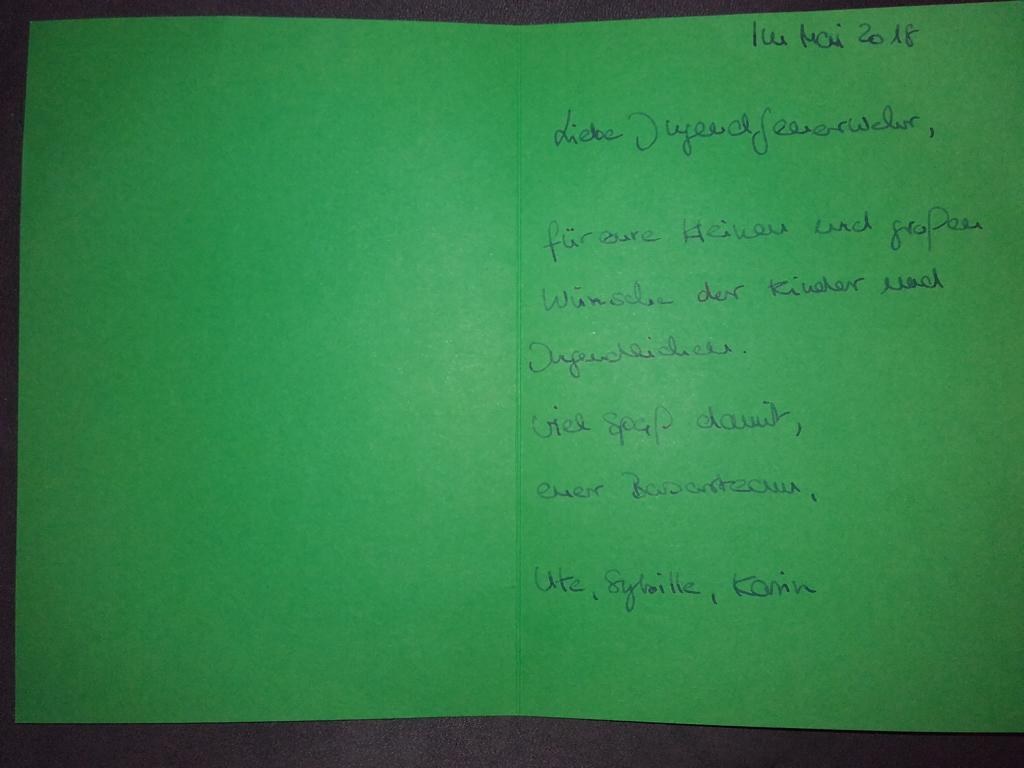 Im Mai 2018
Liebe Jugendfeuerwehr,
für eure kleinen und großen
Wünsche der Kinder und
Jugendlichen.
Viel Spaß damit,
euer Basarteam,
Ute, Sybille, Karin